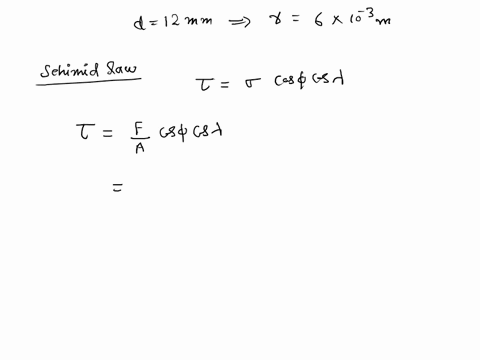 d = 12 mm ⟹ r = 6 × 10⁻³ m
Schimid Law τ = σ cosφ cosλ
τ = F/A cosφ cosλ
=